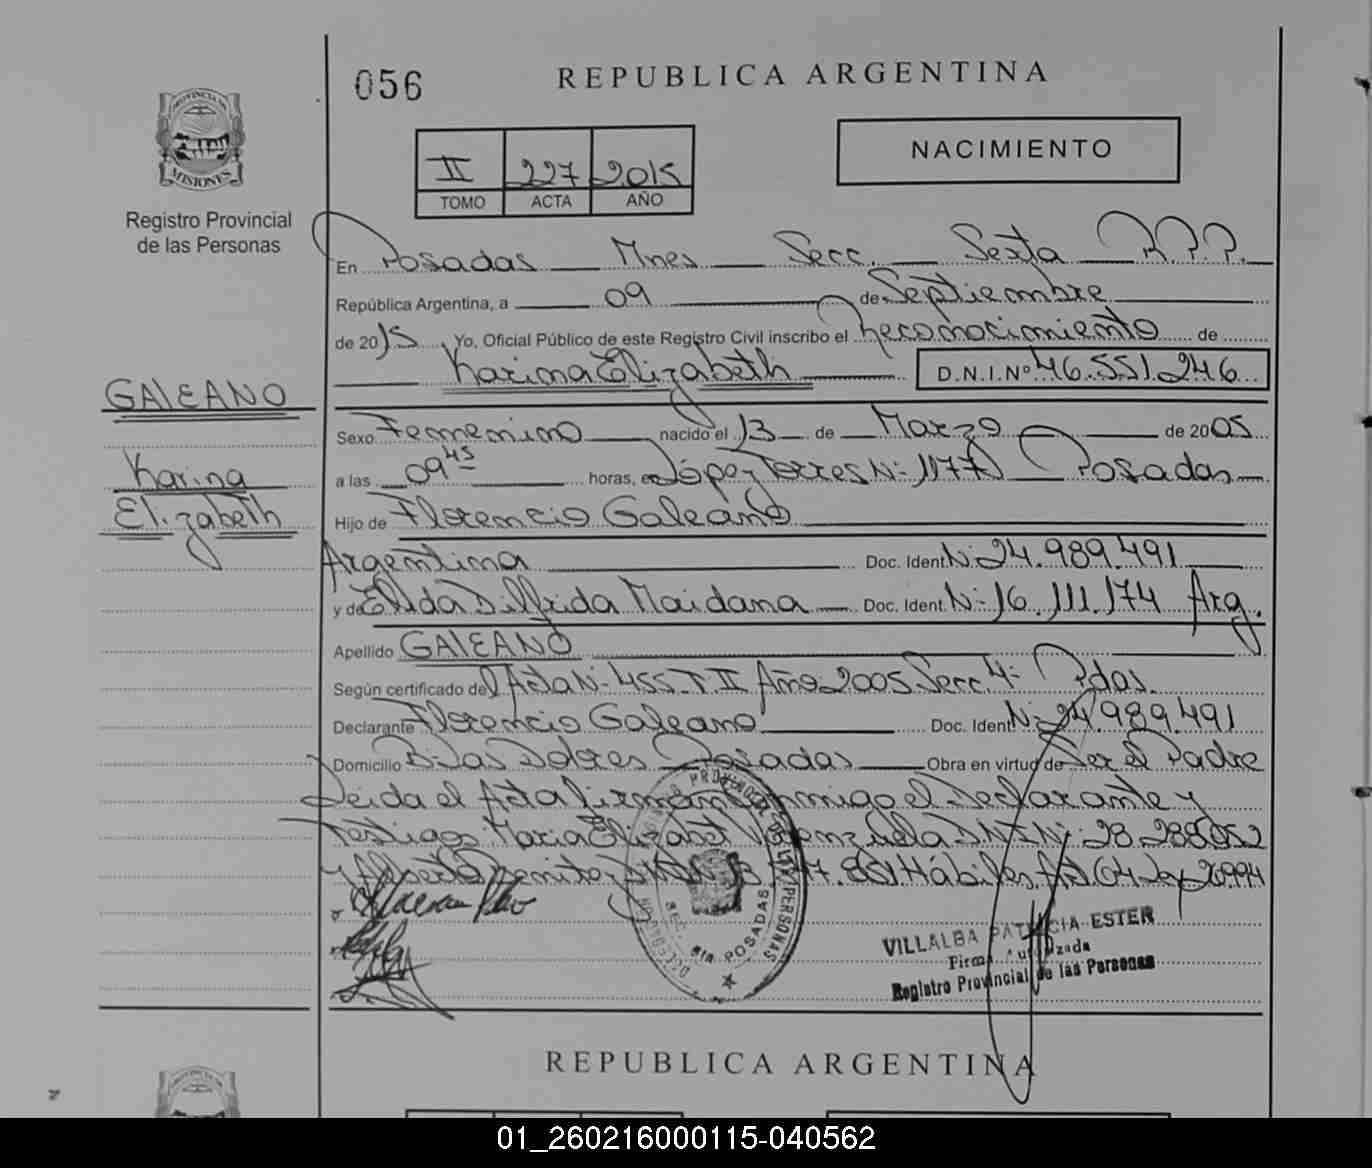 056
REPUBLICA ARGENTINA
PROVINCIA DE
MISIONES
Registro Provincial
de las Personas
II 227 2015
TOMO ACTA AÑO
NACIMIENTO
En Posadas Mnes Secc. Sexta R.P.P.
República Argentina, a 09 de Septiembre
de 2015, Yo, Oficial Público de este Registro Civil inscribo el Reconocimiento de
Karina Elizabeth D.N.I.Nº 46.551.246
GALEANO
Karina
Elizabeth
Sexo Femenino nacido el 13 de Marzo de 2005
a las 09 45 horas, en López Torres Nº 1177 Posadas
Hijo de Florencio Galeano
Argentina Doc. Ident. Nº 24.989.491
y de Elida Dilfrida Maidana Doc. Ident. Nº 16.111.174 Arg.
Apellido GALEANO
Según certificado del Acta Nº 455 T II Año 2005 Secc. 4º Pdas.
Declarante Florencio Galeano Doc. Ident. Nº 24.989.491
Domicilio Bº Las Dolores Posadas Obra en virtud de Ser el Padre
Leida el Acta firman conmigo el Declarante y
Testigos: Maria Elizabet Valenzuela D.N.I Nº 28.288.052
y Alberto Benitez Hábiles Art 64 Ley 26994
VILLALBA PATRICIA ESTER
Firma Autorizada
Registro Provincial de las Personas
PROVINCIAL DE LAS PERSONAS
SEC. 6ta POSADAS
REPUBLICA ARGENTINA
01_260216000115-040562